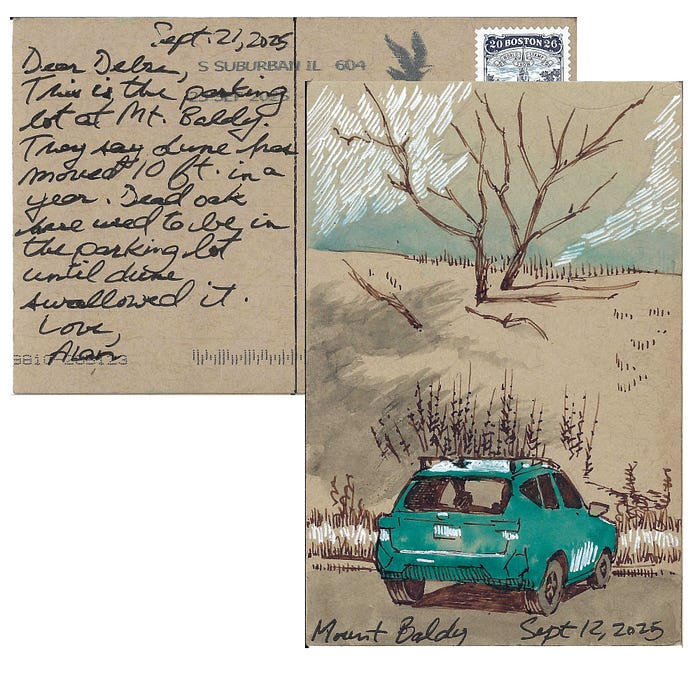 Sept. 21, 2025
S SUBURBAN IL 604
20 BOSTON 26
Dear Debra,
This is the parking
lot at Mt. Baldy
They say dune has
moved 10 ft. in a
year. Dead oak
here used to be in
the parking lot
until dune
swallowed it.
Love,
Alan
Mount Baldy Sept 12, 2025